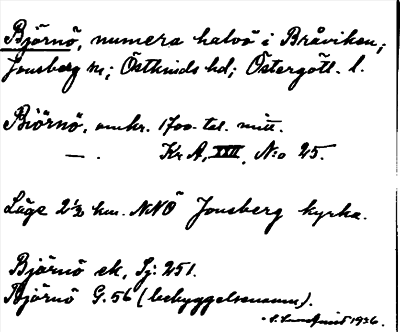 Björnö, numera halvö i Bråviken;
Jonsberg sn; Östkinds hd; Östergötl. l.
Biörnö, omkr. 1700-tal. mitt.
— . Kr A, XXII, N:o 25.
Läge 2½ km. NNÖ Jonsberg kyrka.
Björnö ek, Sj: 251.
Björnö G. 56 (bebyggelsenamn).
1936.